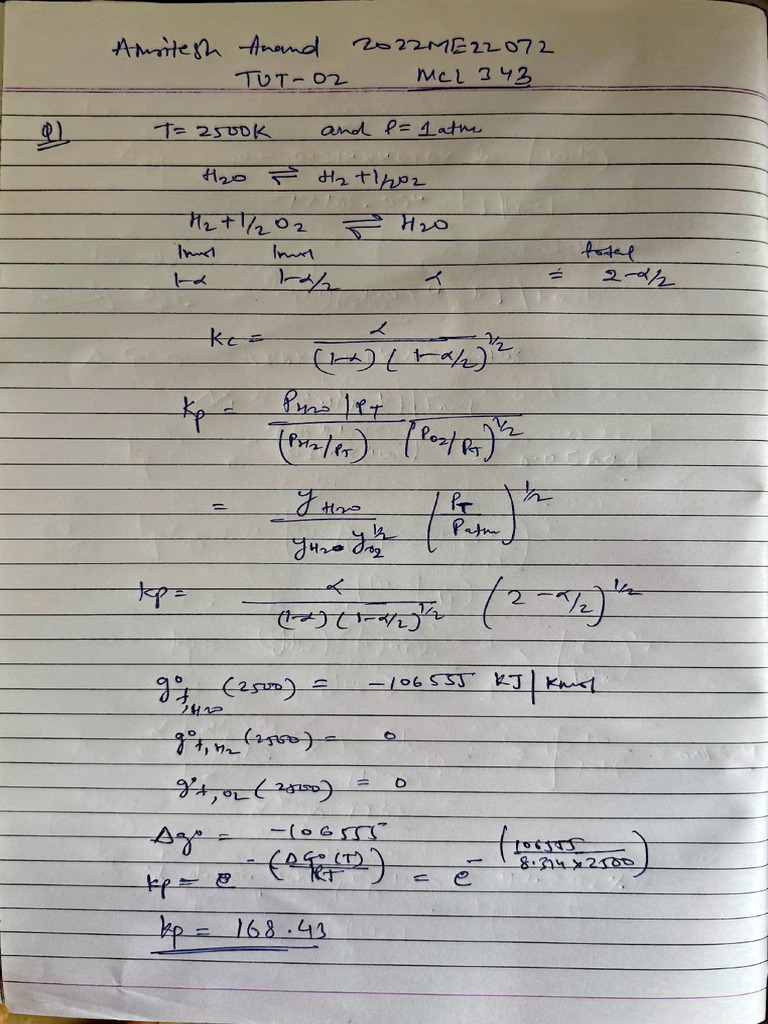 Amritesh Anand 2022ME22072
TUT-02 MCL 343
Q1 T= 2500K and P= 1 atm
H2O ⇌ H2+1/2O2
H2+1/2 O2 ⇌ H2O
1mol 1mol total
1-α 1-α/2 α = 2-α/2
Kc = α / (1-α) (1-α/2)^1/2
Kp = PH2O/PT / (PH2/PT) (PO2/PT)^1/2
= yH2O / yH2O yO2^1/2 (PT/Patm)^1/2
Kp = α / (1-α) (1-α/2)^1/2 (2-α/2)^1/2
g°f,H2O (2500) = -106555 KJ/Kmol
g°f,H2 (2500) = 0
g°f,O2 (2500) = 0
Δg° = -106555
Kp = e^-(ΔG°(T)/RT) = e^-(106555/8.314×2500)
Kp = 168.43